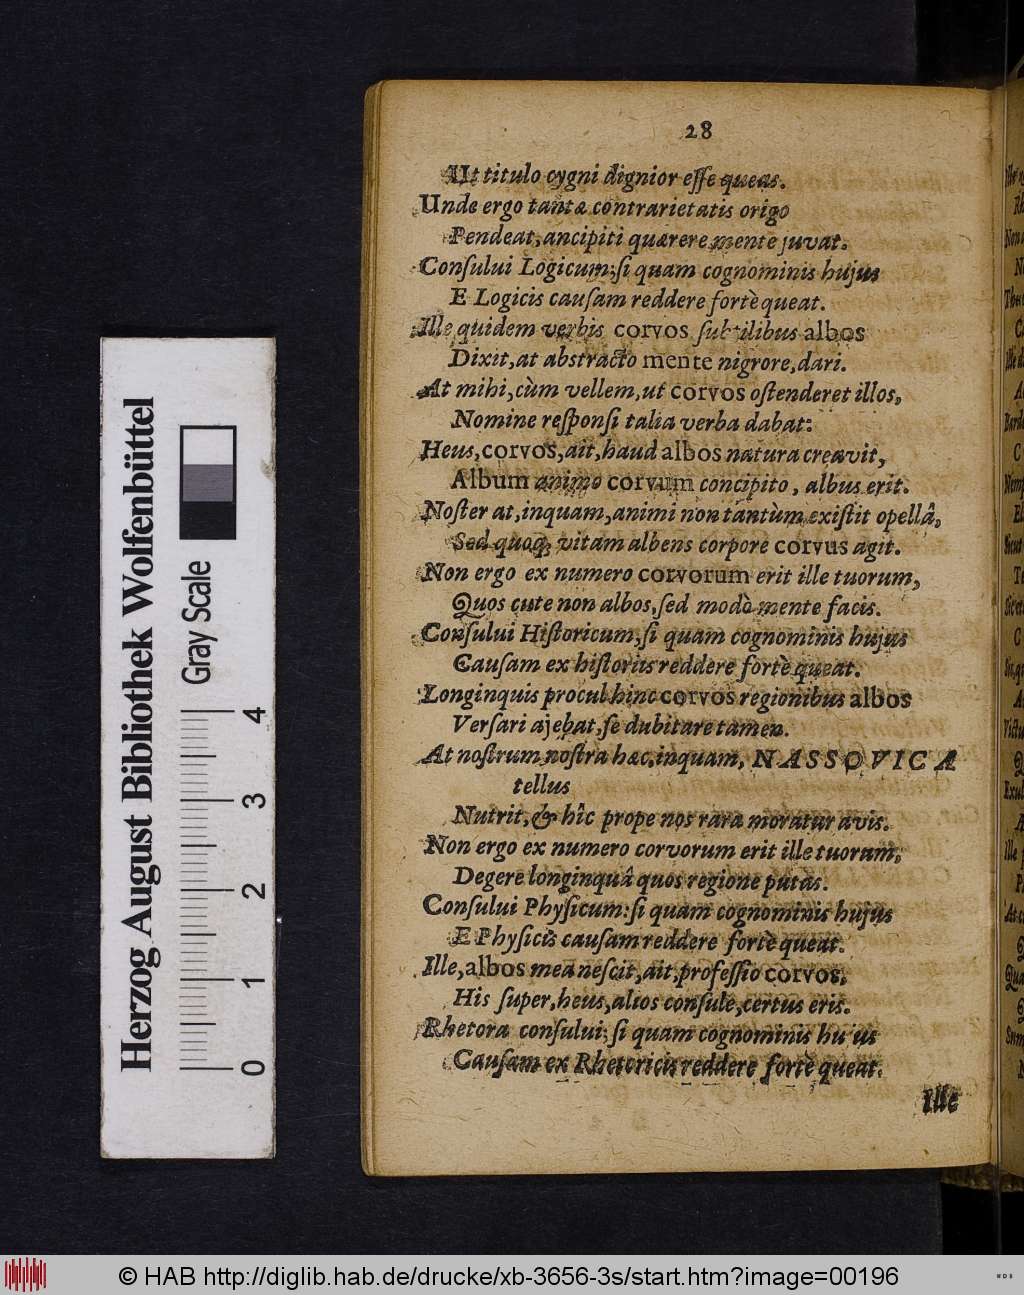 28
Ut titulo cygni dignior eſſe queas.
Unde ergo tantæ contrarietatis origo
Pendeat, ancipiti quærere mente juvat.
Conſului Logicum; ſi quam cognominis hujus
E Logicis cauſam reddere fortè queat.
Ille quidem verbis corvos ſubtilibus albos
Dixit, at abstracto mente nigrore, dari.
At mihi, cùm vellem, ut corvos oſtenderet illos,
Nomine reſponſi talia verba dabat:
Heus, corvos, ait, haud albos natura creavit,
Album animo corvum concipito, albus erit.
Noſter at, inquam, animi non tantùm exiſtit opellâ,
Sed quoq; vitam albens corpore corvus agit.
Non ergo ex numero corvorum erit ille tuorum,
Quos cute non albos, ſed modò mente facis.
Conſului Hiſtoricum, ſi quam cognominis hujus
Cauſam ex hiſtoriis reddere fortè queat.
Longinquis procul hinc corvos regionibus albos
Verſari ajebat, ſe dubitare tamen.
At noſtrum noſtra hæc, inquam, NASSOVICA
tellus
Nutrit, & hîc prope nos rara moratur avis.
Non ergo ex numero corvorum erit ille tuorum,
Degere longinquâ quos regione putas.
Conſului Phyſicum: ſi quam cognominis hujus
E Phyſicis cauſam reddere fortè queat.
Ille, albos mea neſcit, ait, profeſſio corvos,
His ſuper, heus, alios conſule, certus eris.
Rhetora conſului; ſi quam cognominis hujus
Cauſam ex Rhetoricis reddere fortè queat.
Ille
Herzog August Bibliothek Wolfenbüttel
Gray Scale
0 1 2 3 4
© HAB http://diglib.hab.de/drucke/xb-3656-3s/start.htm?image=00196